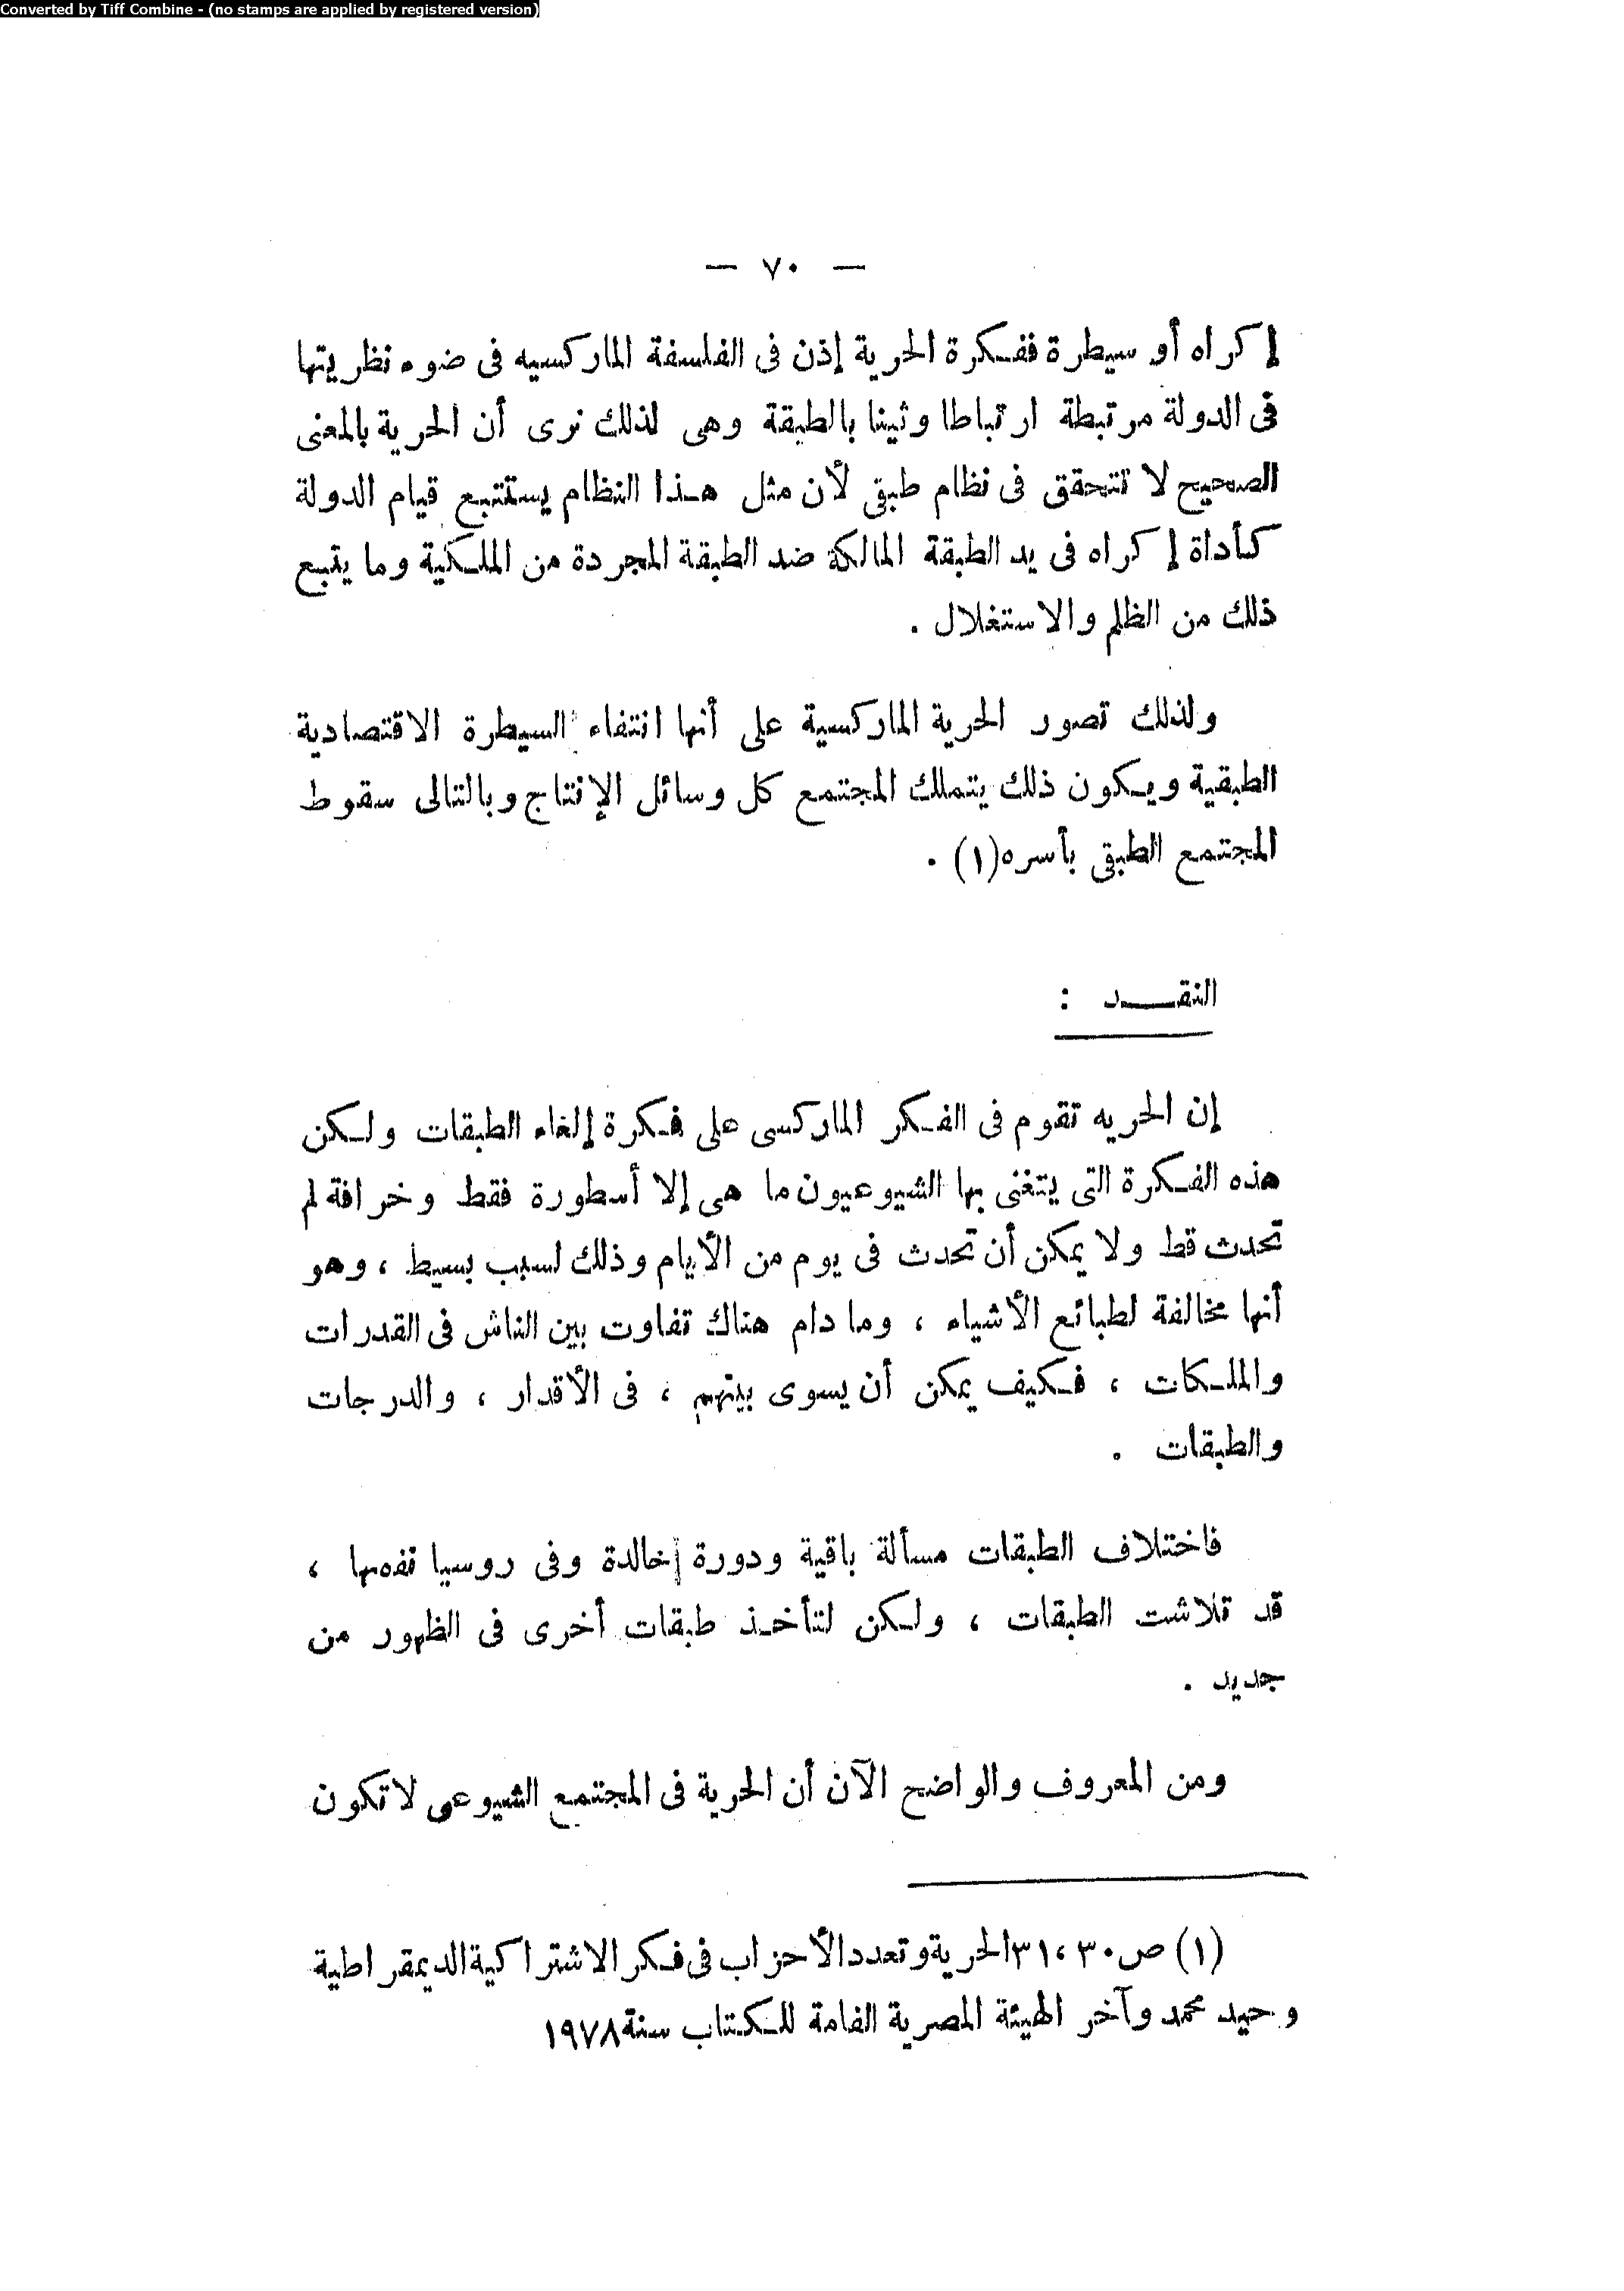 Converted by Tiff Combine - (no stamps are applied by registered version)
— ٧٠ —
إكراه أو سيطرة ففكرة الحرية إذن فى الفلسفة الماركسيه فى ضوء نظريتها
فى الدولة مرتبطة ارتباطا وثيقا بالطبقة وهى لذلك نرى أن الحرية بالمعنى
الصحيح لا تتحقق فى نظام طبقى لأن مثل هذا النظام يستتبع قيام الدولة
كأداة إكراه فى يد الطبقة المالكة ضد الطبقة المجردة من الملكية وما يتبع
ذلك من الظلم والاستغلال .
ولذلك تصور الحرية الماركسية على أنها انتفاء السيطرة الاقتصادية
الطبقية ويكون ذلك يتملك المجتمع كل وسائل الإنتاج وبالتالى سقوط
المجتمع الطبقى بأسره (١) .
النقد :
إن الحريه تقوم فى الفكر الماركسى على فكرة إلغاء الطبقات ولكن
هذه الفكرة التى يتغنى بها الشيوعيون ما هى إلا أسطورة فقط وخرافة لم
تحدث قط ولا يمكن أن تحدث فى يوم من الأيام وذلك لسبب بسيط ، وهو
أنها مخالفة لطبائع الأشياء ، وما دام هناك تفاوت بين الناش فى القدرات
والملكات ، فكيف يمكن أن يسوى بينهم ، فى الأقدار ، والدرجات
والطبقات .
فاختلاف الطبقات مسألة باقية ودورة خالدة وفى روسيا نفسها ،
قد تلاشت الطبقات ، ولكن لتأخذ طبقات أخرى فى الظهور من
جديد .
ومن المعروف والواضح الآن أن الحرية فى المجتمع الشيوعى لا تكون
(١) ص ٣٠ ، ٣١ الحرية وتعدد الأحزاب فى فكر الاشتراكية الديمقراطية
وحيد محمد وآخر الهيئة المصرية الفامة للكتاب سنة ١٩٧٨